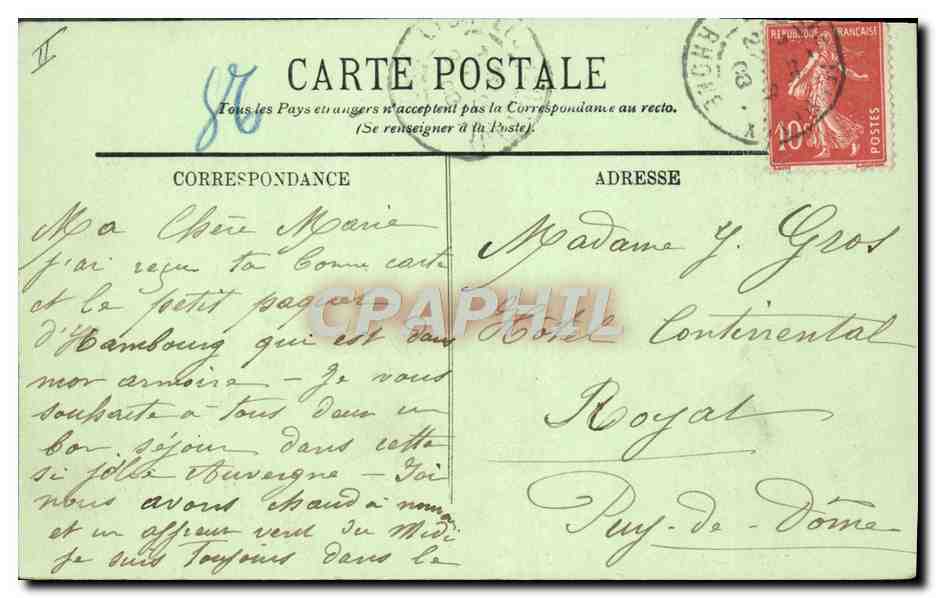 II
87
CARTE POSTALE
Tous les Pays étrangers n'acceptent pas la Correspondance au recto.
(Se renseigner à la Poste).
RHONE
08
REPUBLIQUE FRANÇAISE
10c
POSTES
CORRESPONDANCE
Ma Chère Marie
j'ai reçu ta bonne carte
et le petit paquet
d'Hambourg qui est dans
mon armoire - Je vous
souhaite à tous deux un
bon séjour dans cette
si jolie Auvergne - Ici
nous avons chaud à
et un affreux vent du Midi
je suis toujours dans le
ADRESSE
Madame J. Gros
Hôtel Continental
Royat
Puy-de-Dôme
CPAPHIL